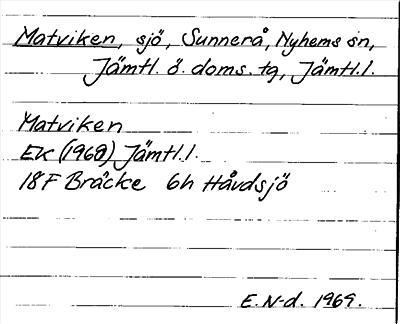 Matviken, sjö, Sunnerå, Nyhems sn,
Jämtl. ö. doms. tg, Jämtl.l.
Matviken
EK (1968) Jämtl.l.
18F Bräcke 6h Håvdsjö
E. N-d. 1969.